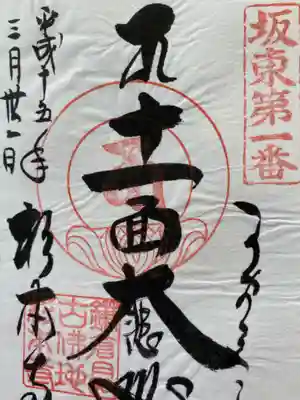 坂東第一番
十一面大悲
平成十五年
三月卅一日
杉本寺
鎌倉最
古佛地
杉本寺